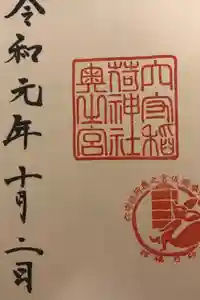 穴守稲
荷神社
奥之宮
令和元年十月二日